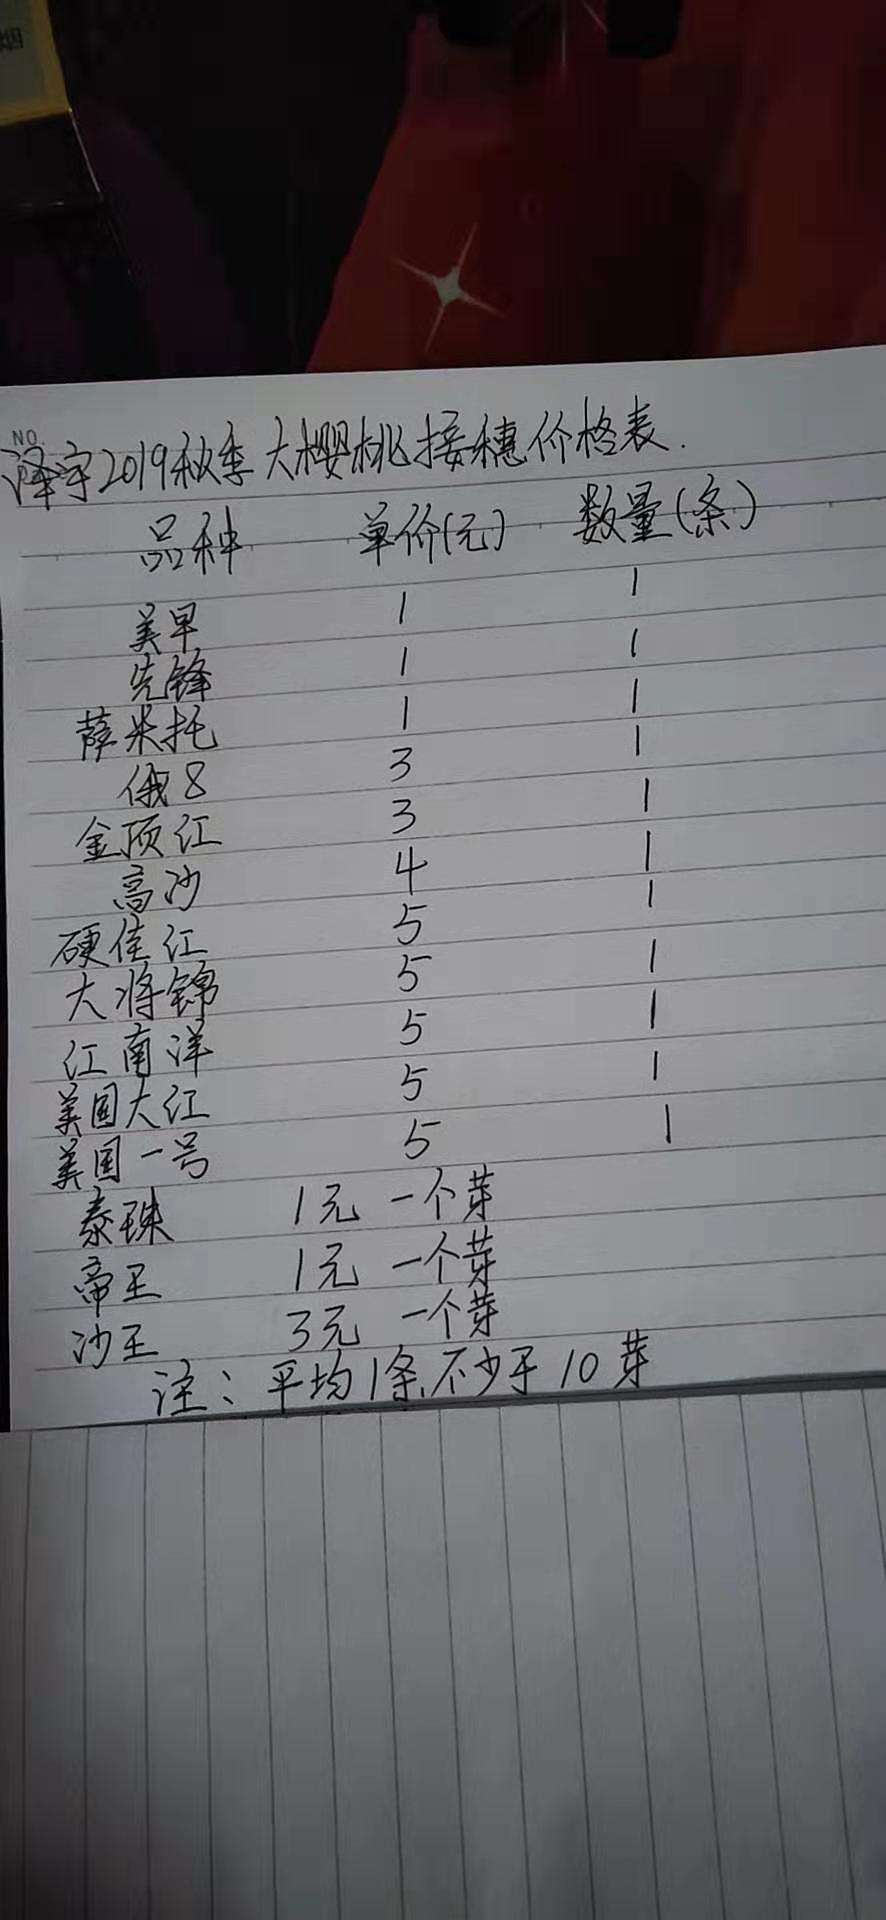 烟
NO.
泽宇2019秋季大樱桃接穗价格表.
品种 单价(元) 数量(条)
美早 1 1
先锋 1 1
萨米托 1 1
俄8 3 1
金顶红 3 1
高沙 4 1
硬佳红 5 1
大将锦 5 1
江南洋 5 1
美国大红 5 1
美国一号 5 1
泰珠 1元 一个芽
帝王 1元 一个芽
沙王 3元 一个芽
注：平均1条不少于10芽